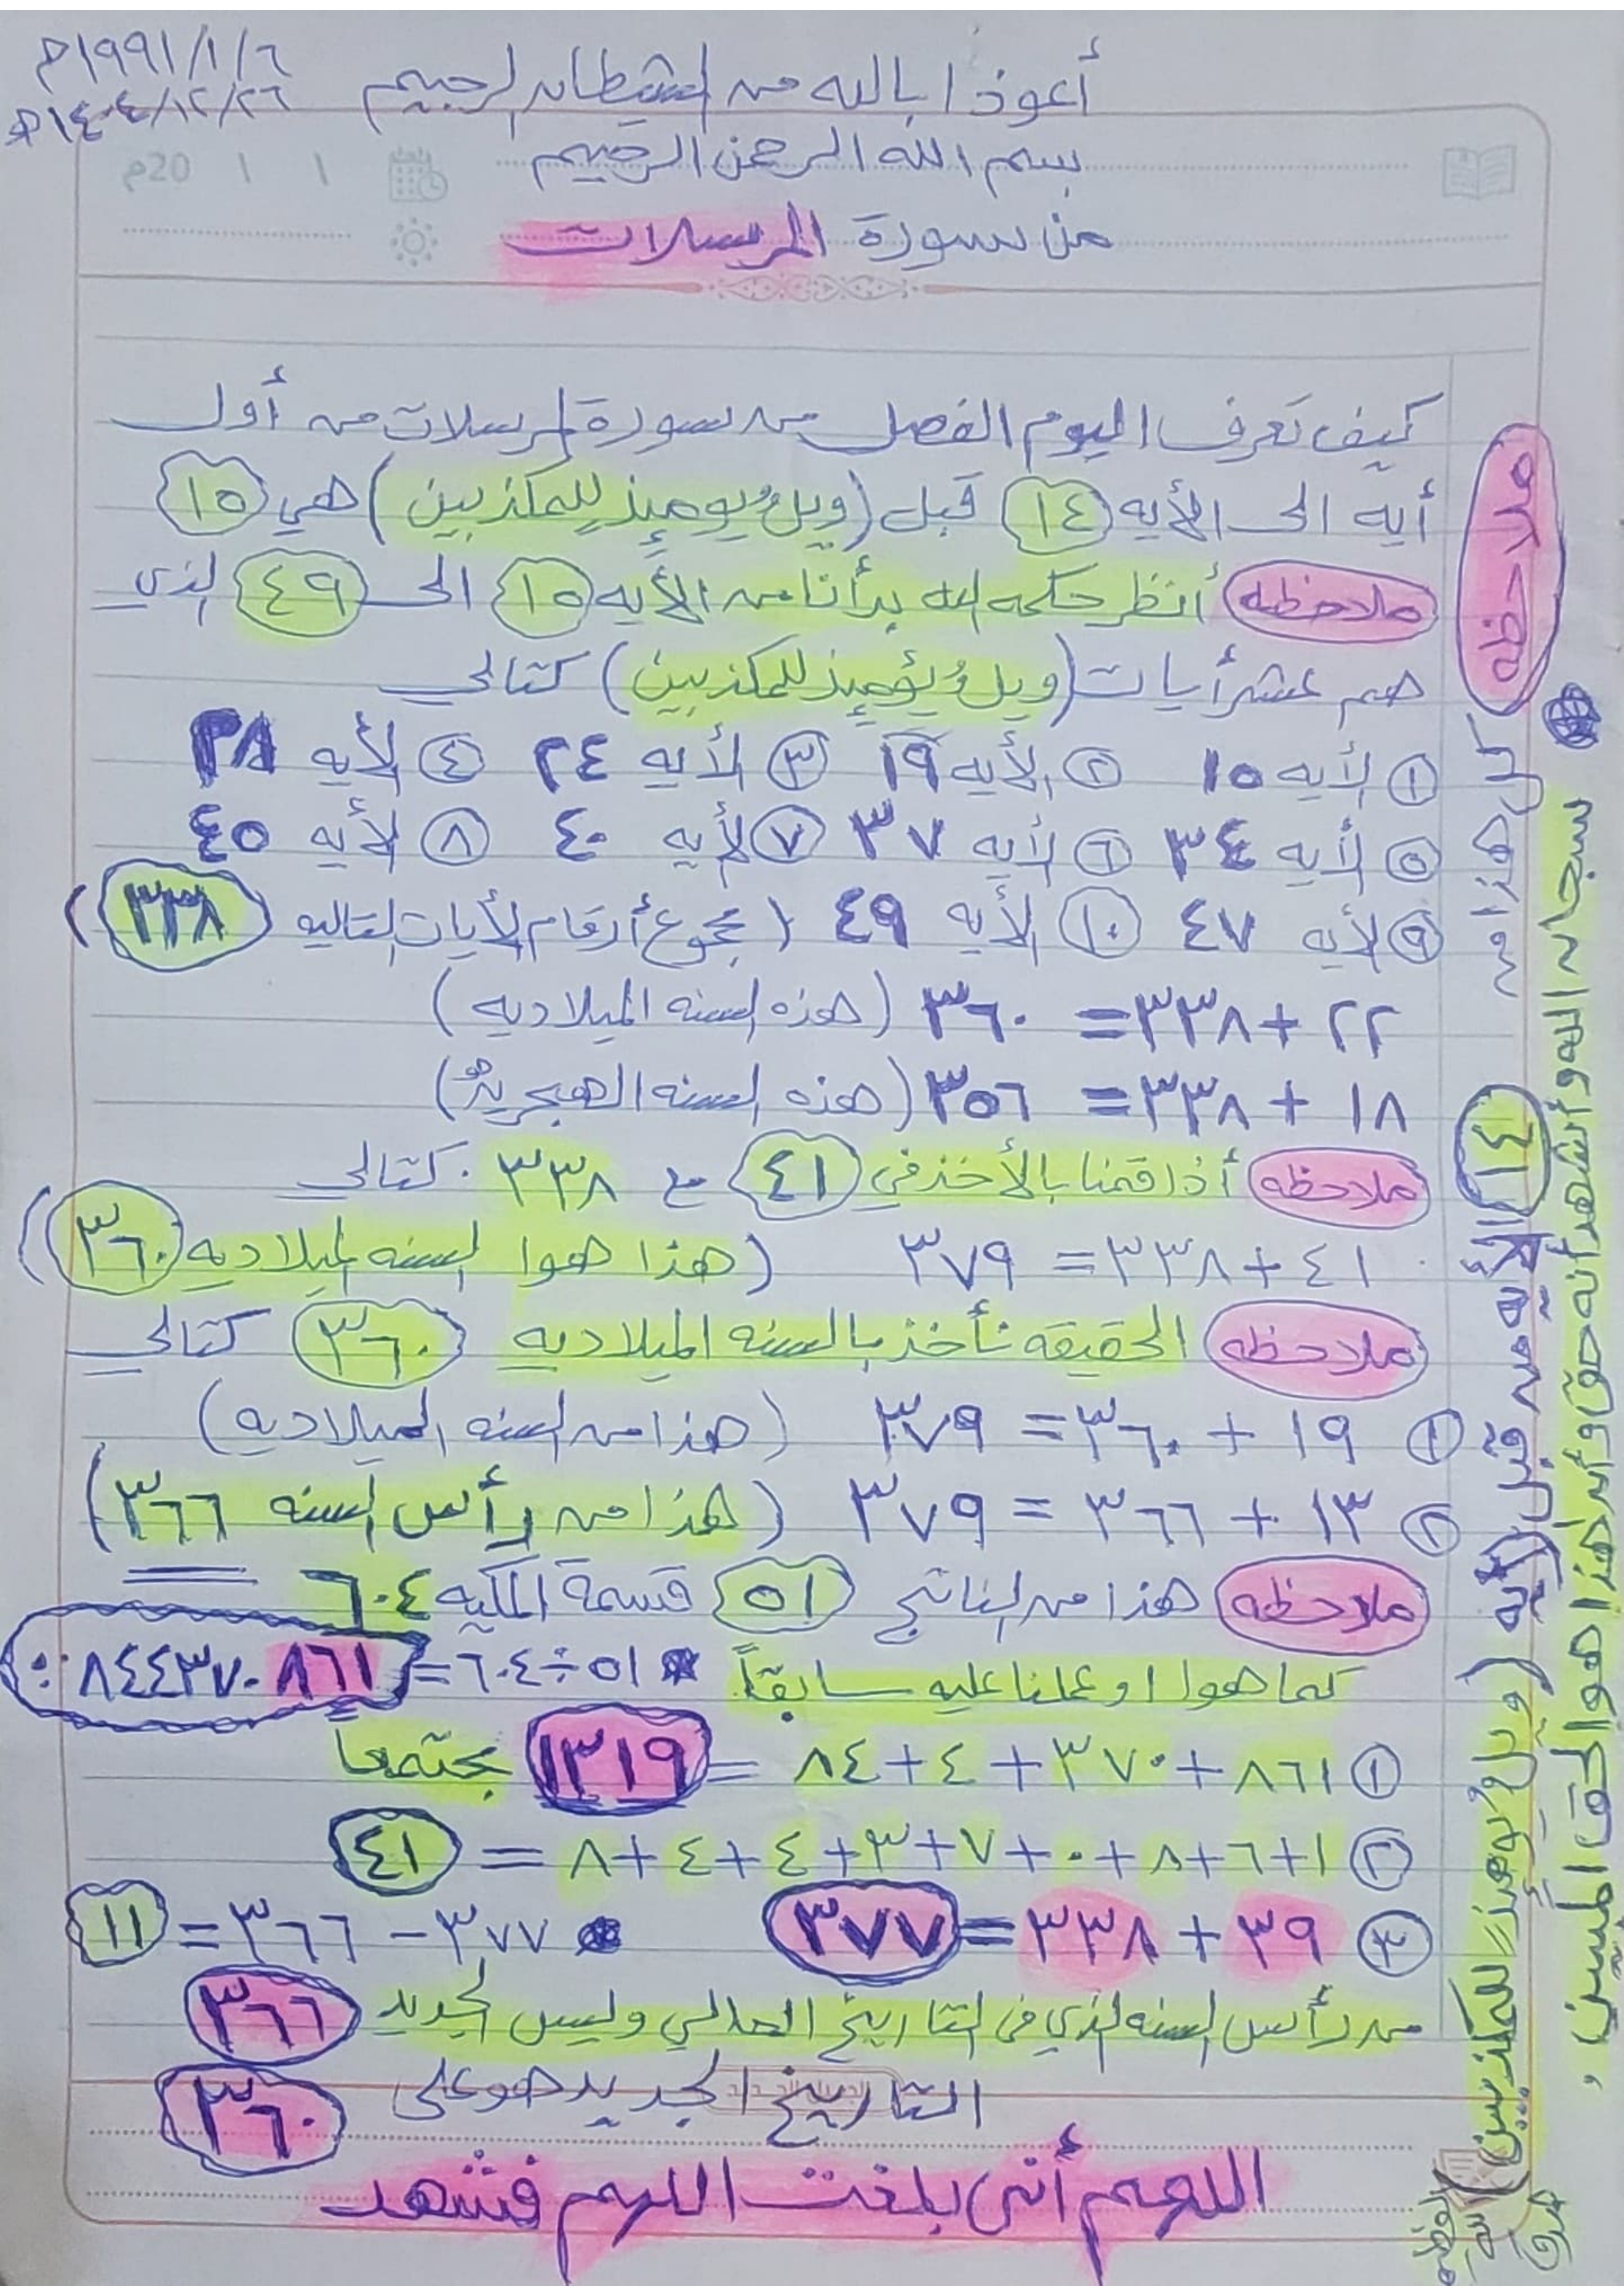 ١٩٩١/١/٦م
١٤٠٤/١٢/٢٦ه
أعوذ ا بالله من الشيطان الرجيم
بسم الله الرحمن الرحيم
20م / /
من سورة المرسلات
كيف تعرف اليوم الفصل من سورة المرسلات من أول
أيه الى الأيه ١٤ قبل (ويلٌ يومئِذٍ للمكذبين) هي ١٥
ملاحظه أنظر حكمه الله بدأنا من الأيه ١٥ الى ٤٩ الذي
هم عشر أيات (ويلٌ يؤمئِذٍ للمكذبين) كتالي
١ الأيه ١٥ ٢ الأيه ١٩ ٣ الأيه ٢٤ ٤ الأيه ٢٨
٥ الأيه ٣٤ ٦ الأيه ٣٧ ٧ الأيه ٤٠ ٨ الأيه ٤٥
٩ الأيه ٤٧ ١٠ الأيه ٤٩ (مجموع أرقام الأيات التاليه ٣٣٨)
٢٢ + ٣٣٨ = ٣٦٠ (هذه السنه الميلاديه)
١٨ + ٣٣٨ = ٣٥٦ (هذه السنه الهجريه)
ملاحظه أذا قمنا بالأخذ في ٤١ مع ٣٣٨ . كتالي
٤١ + ٣٣٨ = ٣٧٩ (هذا هوا السنه الميلاديه ٣٦٠)
ملاحظه الحقيقه نأخذ بالسنه الميلاديه ٣٦٠ كتالي
١ ١٩ + ٣٦٠ = ٣٧٩ (هذا من السنه الميلاديه)
٢ ١٣ + ٣٦٦ = ٣٧٩ (هذا من رأس السنه ٣٦٦)
ملاحظه هذا من الناتج ٥١ قسمة المكيه ٦٠٤
كما هوا او عملنا عليه سابقاً * ٥١ ÷ ٦٠٤ = ٠.٠٨٤٤٣٧٠٨٦١
١ ٨٦١ + ٣٧٠ + ٤ + ٨٤ = ١٣١٩ مجتمعاً
٢ ١ + ٦ + ٨ + ٠ + ٧ + ٣ + ٤ + ٤ + ٨ = ٤١
٣ ٣٩ + ٣٣٨ = ٣٧٧ * ٣٧٧ - ٣٦٦ = ١١
من رأس السنه الذي في التاريخ الحالي وليس الجديد ٣٦٦
التاريخ الجديد هو على ٣٦٠
اللهم أني بلغت اللهم فشهد
ملاحظه كل هذا من ١٤ الأيه من قبل الأيه (ويلٌ يومئذٍ للمكذبين)
سبحانه الله وأشهد أنه حق وأن هذا هو الحق المبين